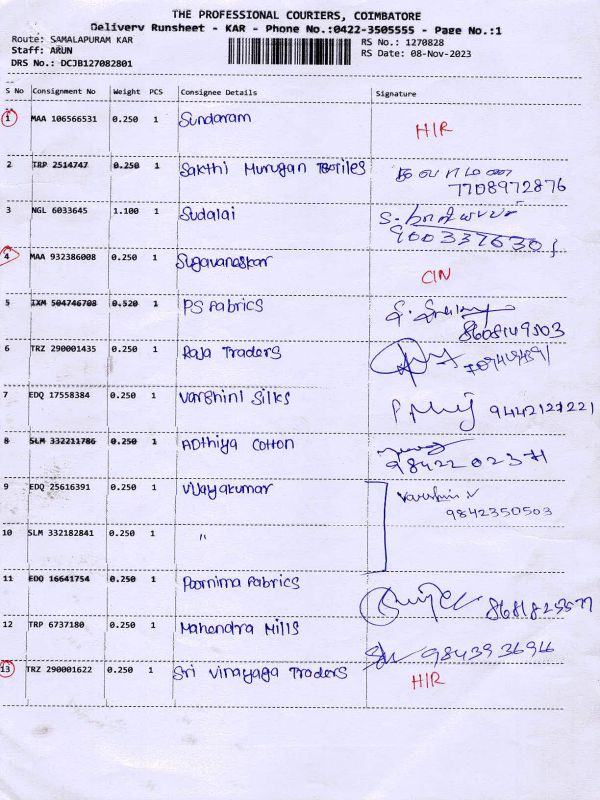 THE PROFESSIONAL COURIERS, COIMBATORE
Delivery Runsheet - KAR - Phone No.:0422-3505555 - Page No.:1
Route: SAMALAPURAM KAR
RS No.: 1270828
Staff: ARUN
RS Date: 08-Nov-2023
DRS No.: DCJB127082801
S No Consignment No Weight PCS Consignee Details Signature
1 MAA 106566531 0.250 1 Sundaram HIR
2 TRP 2514747 0.250 1 Sakthi Murugan Textiles
7708972876
3 NGL 6033645 1.100 1 Sudalai
4 MAA 932386008 0.250 1 Sugavanaskar CIN
5 IXM 504746708 0.520 1 PS Fabrics
8608149503
6 TRZ 290001435 0.250 1 Raja Traders
7 EDQ 17558384 0.250 1 Varshini Silks 9442127221
8 SLM 332211786 0.250 1 Adthiya Cotton
9842202371
9 EDQ 25616391 0.250 1 Vijayakumar Varshini V
9842350503
10 SLM 332182841 0.250 1 "
11 EDQ 16641754 0.250 1 Poornima Fabrics
12 TRP 6737180 0.250 1 Mahendra Mills
9843936946
13 TRZ 290001622 0.250 1 Sri Vinayaga Traders HIR